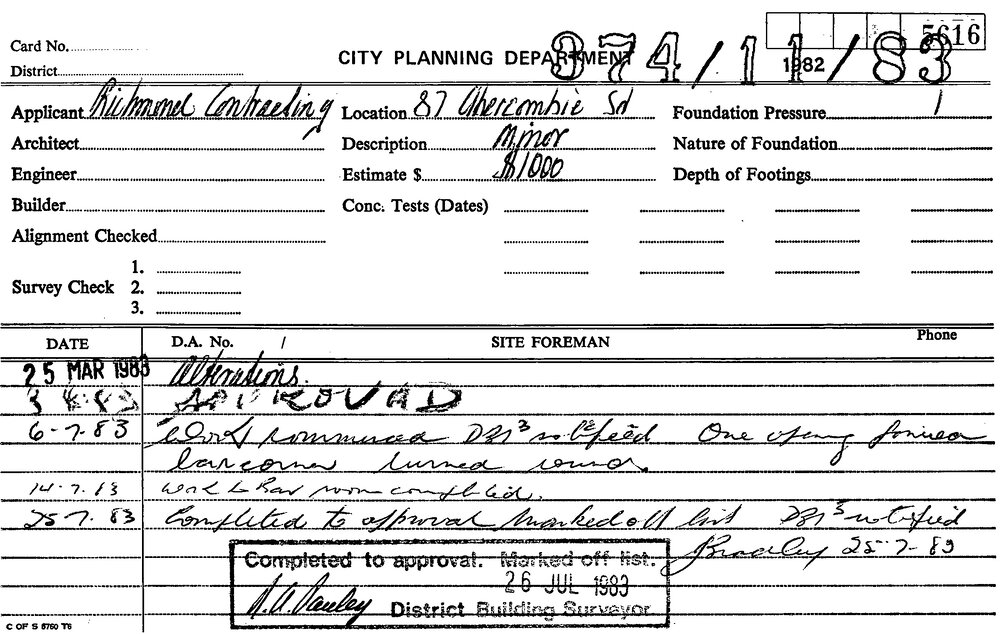 5616
Card No.
CITY PLANNING DEPARTMENT 374/11/83
1982
District
Applicant Richmond Contracting Location 87 Abercrombie St Foundation Pressure
Architect Description Minor Nature of Foundation
Engineer Estimate $ $1000 Depth of Footings
Builder Conc. Tests (Dates)
Alignment Checked
1.
Survey Check 2.
3.
DATE D.A. No. / SITE FOREMAN Phone
25 MAR 1983 Alterations.
3 83 APPROVAD
6-7-83 Work commenced DBS notified One opening formed
bar corner turned round.
14.7.83 Work to Bar room completed.
25 7. 83 Completed to approval Marked off list DBS notified
Bradley 25-7-83
Completed to approval. Marked off list.
26 JUL 1983
District Building Surveyor
C OF S 5760 T6